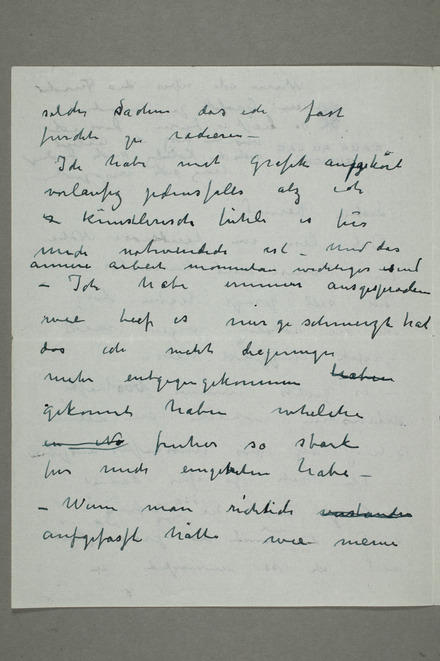 solche Sachen das ich fast
furchte zu radieren –
Ich habe mit Grafik aufgehört
vorläufig jedenfalls als ich
künstlerisch fühle es für
mich notwendich ist – und das
annere arbeit momentan wichtiger sind
– Ich habe immer ausgesprochen
wie tief es mir geschmerzt hat
das ich nicht diejeninger
mehr entgegengekommen haben
gekonnt haben whelche
früher so stark
für mich eingetreten habe –
– Wenn man richtich verstanden
aufgefasst hätte wie meine